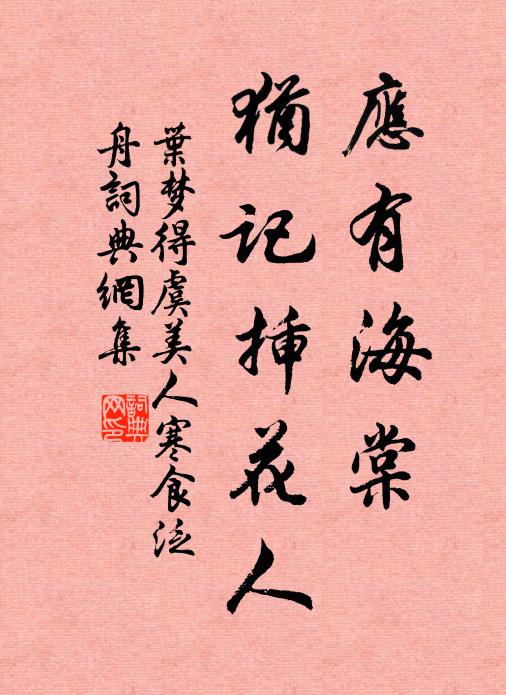 應有海棠
猶記插花人
葉梦得虞美人寒食泛
舟詞典網集
詞典
网印